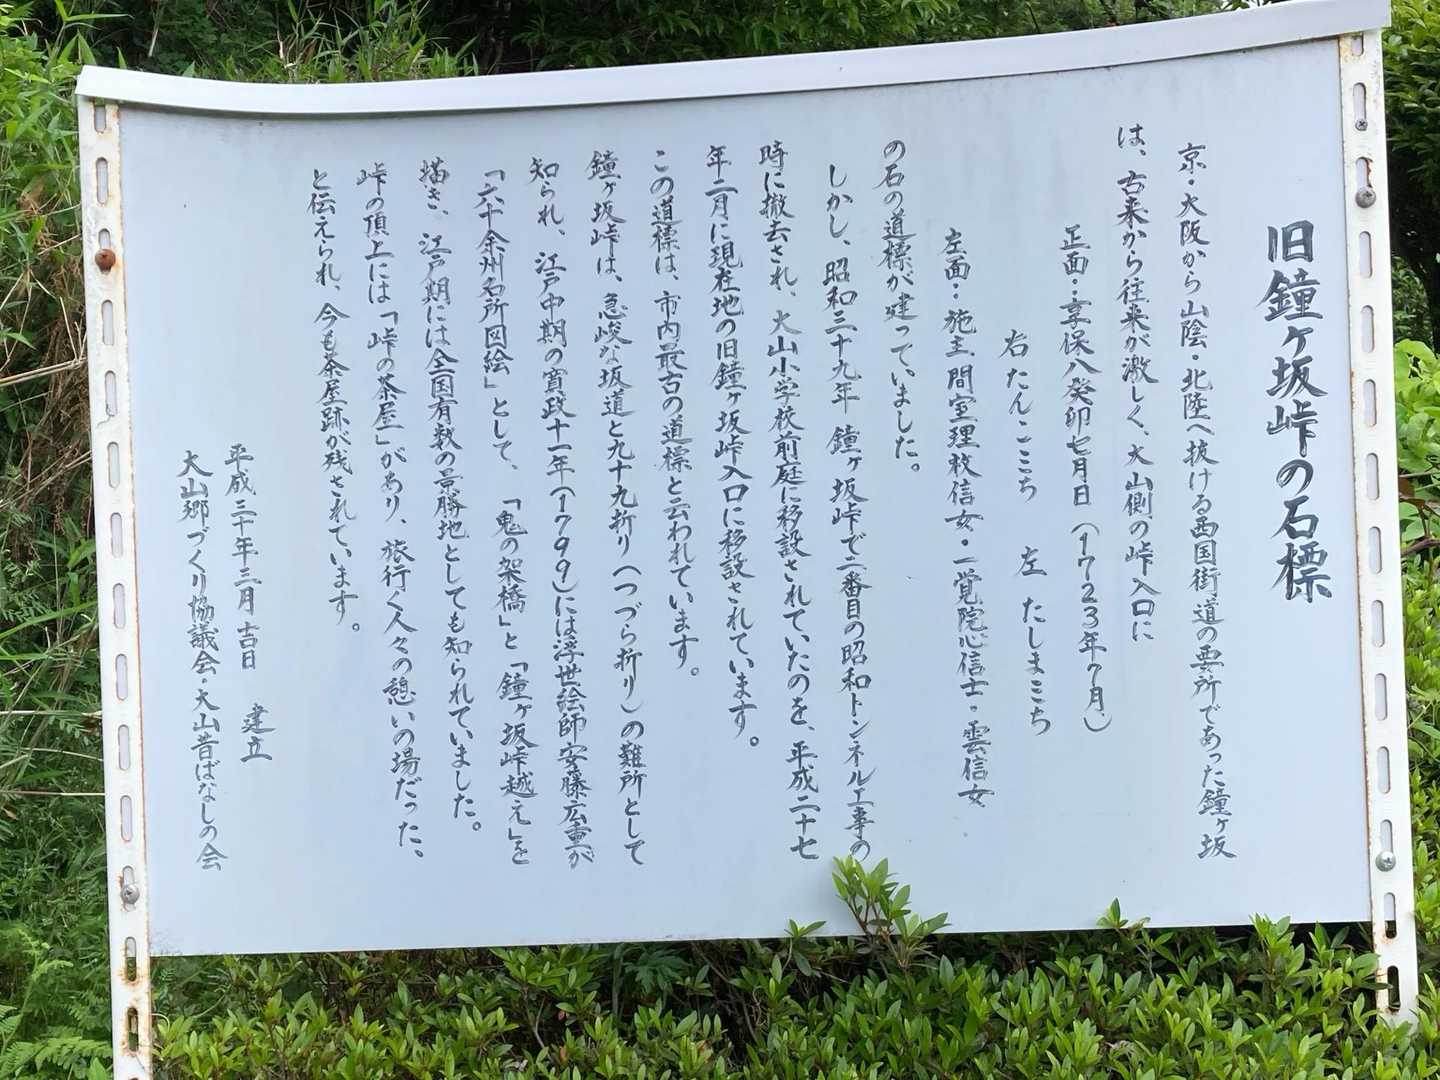 旧鐘ヶ坂峠の石標
京・大阪から山陰・北陸へ抜ける西国街道の要所であった鐘ヶ坂
は、古来から往来が激しく、大山側の峠入口に
正面‥享保八癸卯七月日（1723年7月）
右たんごミち　左 たしまミち
左面‥施主、間室理枚信女・一覚院心信士・雲信女
の石の道標が建っていました。
しかし、昭和三十九年 鐘ヶ坂峠で二番目の昭和トンネル工事の
時に撤去され、大山小学校前庭に移設されていたのを、平成二十七
年二月に現在地の旧鐘ヶ坂峠入口に移設されています。
この道標は、市内最古の道標と云われています。
鐘ヶ坂峠は、急峻な坂道と九十九折り（つづら折り）の難所として
知られ、江戸中期の寛政十一年（1799）には浮世絵師安藤広重が
「六十余州名所図絵」として、「鬼の架橋」と「鐘ヶ坂峠越え」を
描き、江戸期には全国有数の景勝地としても知られていました。
峠の頂上には「峠の茶屋」があり、旅行く人々の憩いの場だった、
と伝えられ、今も茶屋跡が残されています。
平成三十年三月吉日　建立
大山郷づくり協議会・大山昔ばなしの会